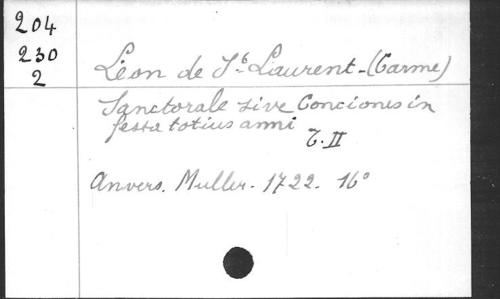 204
230
2
Léon de St Laurent - (Carme)
Sanctorale sive Conciones in
festa totius anni
T. II
Anvers. Muller - 1722. 16°